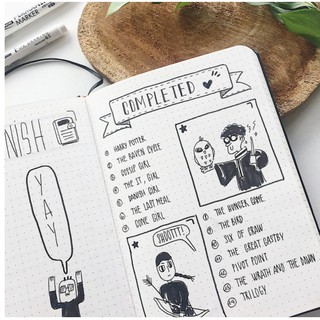 MARKER
NISH
YAY
COMPLETED
HARRY POTTER
THE RAVEN CYCLE
GOSSIP GIRL
THE IT, GIRL
DANISH GIRL
THE LAST MEAL
GONE GIRL
SHOOTTT!
THE HUNGER GAME
THE BIRD
SIX OF CRAW
THE GREAT GASTBY
PIVOT POINT
THE WRATH AND THE DAWN
TRILOGY